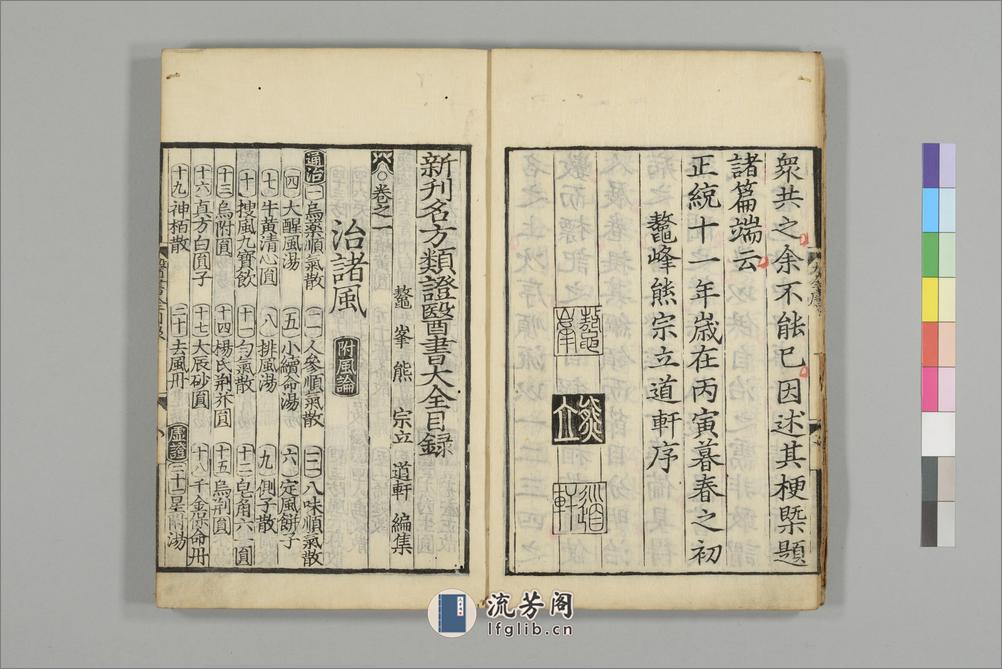 衆共之余不能已因述其梗槩題
諸篇端云
正統十一年歲在丙寅暮春之初
鼇峰熊宗立道軒序
鼇峯
熊立
道軒
新刊名方類證醫書大全目録
鼇峯熊宗立道軒編集
卷之一
治諸風 附風論
通治 一 烏藥順氣散 二 人參順氣散 三 八味順氣散
四 大醒風湯 五 小續命湯 六 定風餅子
七 牛黃清心圓 八 排風湯 九 側子散
十 搜風九寶飲 十一 勻氣散 十二 皂角六一圓
十三 烏附圓 十四 楊氏荆芥圓 十五 烏荆圓
十六 真方白圓子 十七 大辰砂圓 十八 千金保命丹
十九 神栢散 二十 去風丹 虛證 二十一 星附湯
流芳阁
lfglib.cn